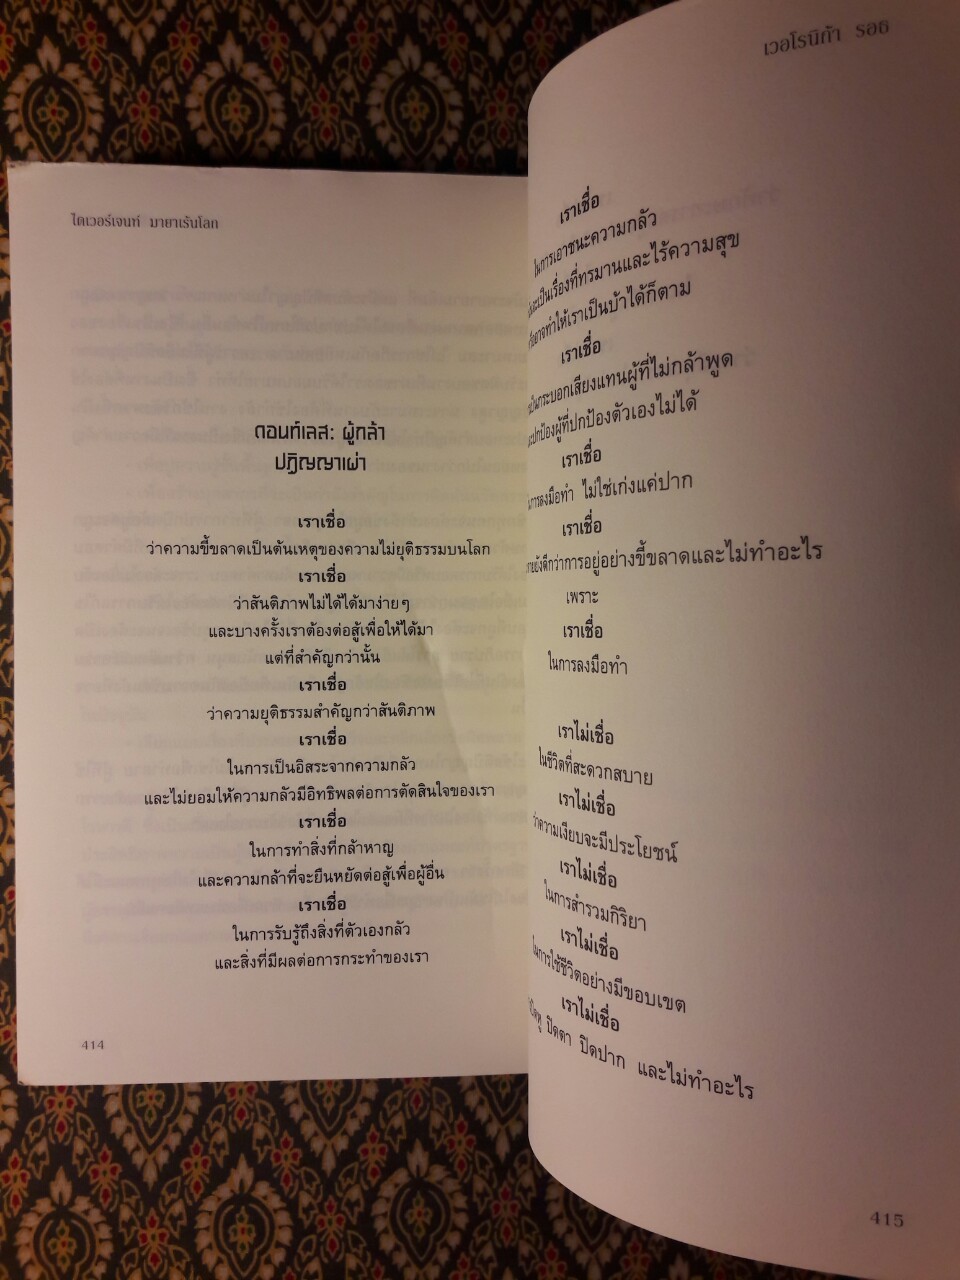 ไดเวอร์เจนท์ มายาเร้นโลก
ดอนท์เลส: ผู้กล้า
ปฏิญญาเผ่า
เราเชื่อ
ว่าความขี้ขลาดเป็นต้นเหตุของความไม่ยุติธรรมบนโลก
เราเชื่อ
ว่าสันติภาพไม่ได้ได้มาง่ายๆ
และบางครั้งเราต้องต่อสู้เพื่อให้ได้มา
แต่ที่สำคัญกว่านั้น
เราเชื่อ
ว่าความยุติธรรมสำคัญกว่าสันติภาพ
เราเชื่อ
ในการเป็นอิสระจากความกลัว
และไม่ยอมให้ความกลัวมีอิทธิพลต่อการตัดสินใจของเรา
เราเชื่อ
ในการทำสิ่งที่กล้าหาญ
และความกล้าที่จะยืนหยัดต่อสู้เพื่อผู้อื่น
เราเชื่อ
ในการรับรู้ถึงสิ่งที่ตัวเองกลัว
และสิ่งที่มีผลต่อการกระทำของเรา
414
เวอโรนิก้า รอธ
เราเชื่อ
ในการเอาชนะความกลัว
จะเป็นเรื่องที่ทรมานและไร้ความสุข
อาจทำให้เราเป็นบ้าได้ก็ตาม
เราเชื่อ
เป็นกระบอกเสียงแทนผู้ที่ไม่กล้าพูด
ปกป้องผู้ที่ปกป้องตัวเองไม่ได้
เราเชื่อ
ในการลงมือทำ ไม่ใช่เก่งแค่ปาก
เราเชื่อ
ยังดีกว่าการอยู่อย่างขี้ขลาดและไม่ทำอะไร
เพราะ
เราเชื่อ
ในการลงมือทำ
เราไม่เชื่อ
ในชีวิตที่สะดวกสบาย
เราไม่เชื่อ
ว่าความเงียบจะมีประโยชน์
เราไม่เชื่อ
ในการสำรวมกิริยา
เราไม่เชื่อ
ในการใช้ชีวิตอย่างมีขอบเขต
เราไม่เชื่อ
ปิดตา ปิดปาก และไม่ทำอะไร
415